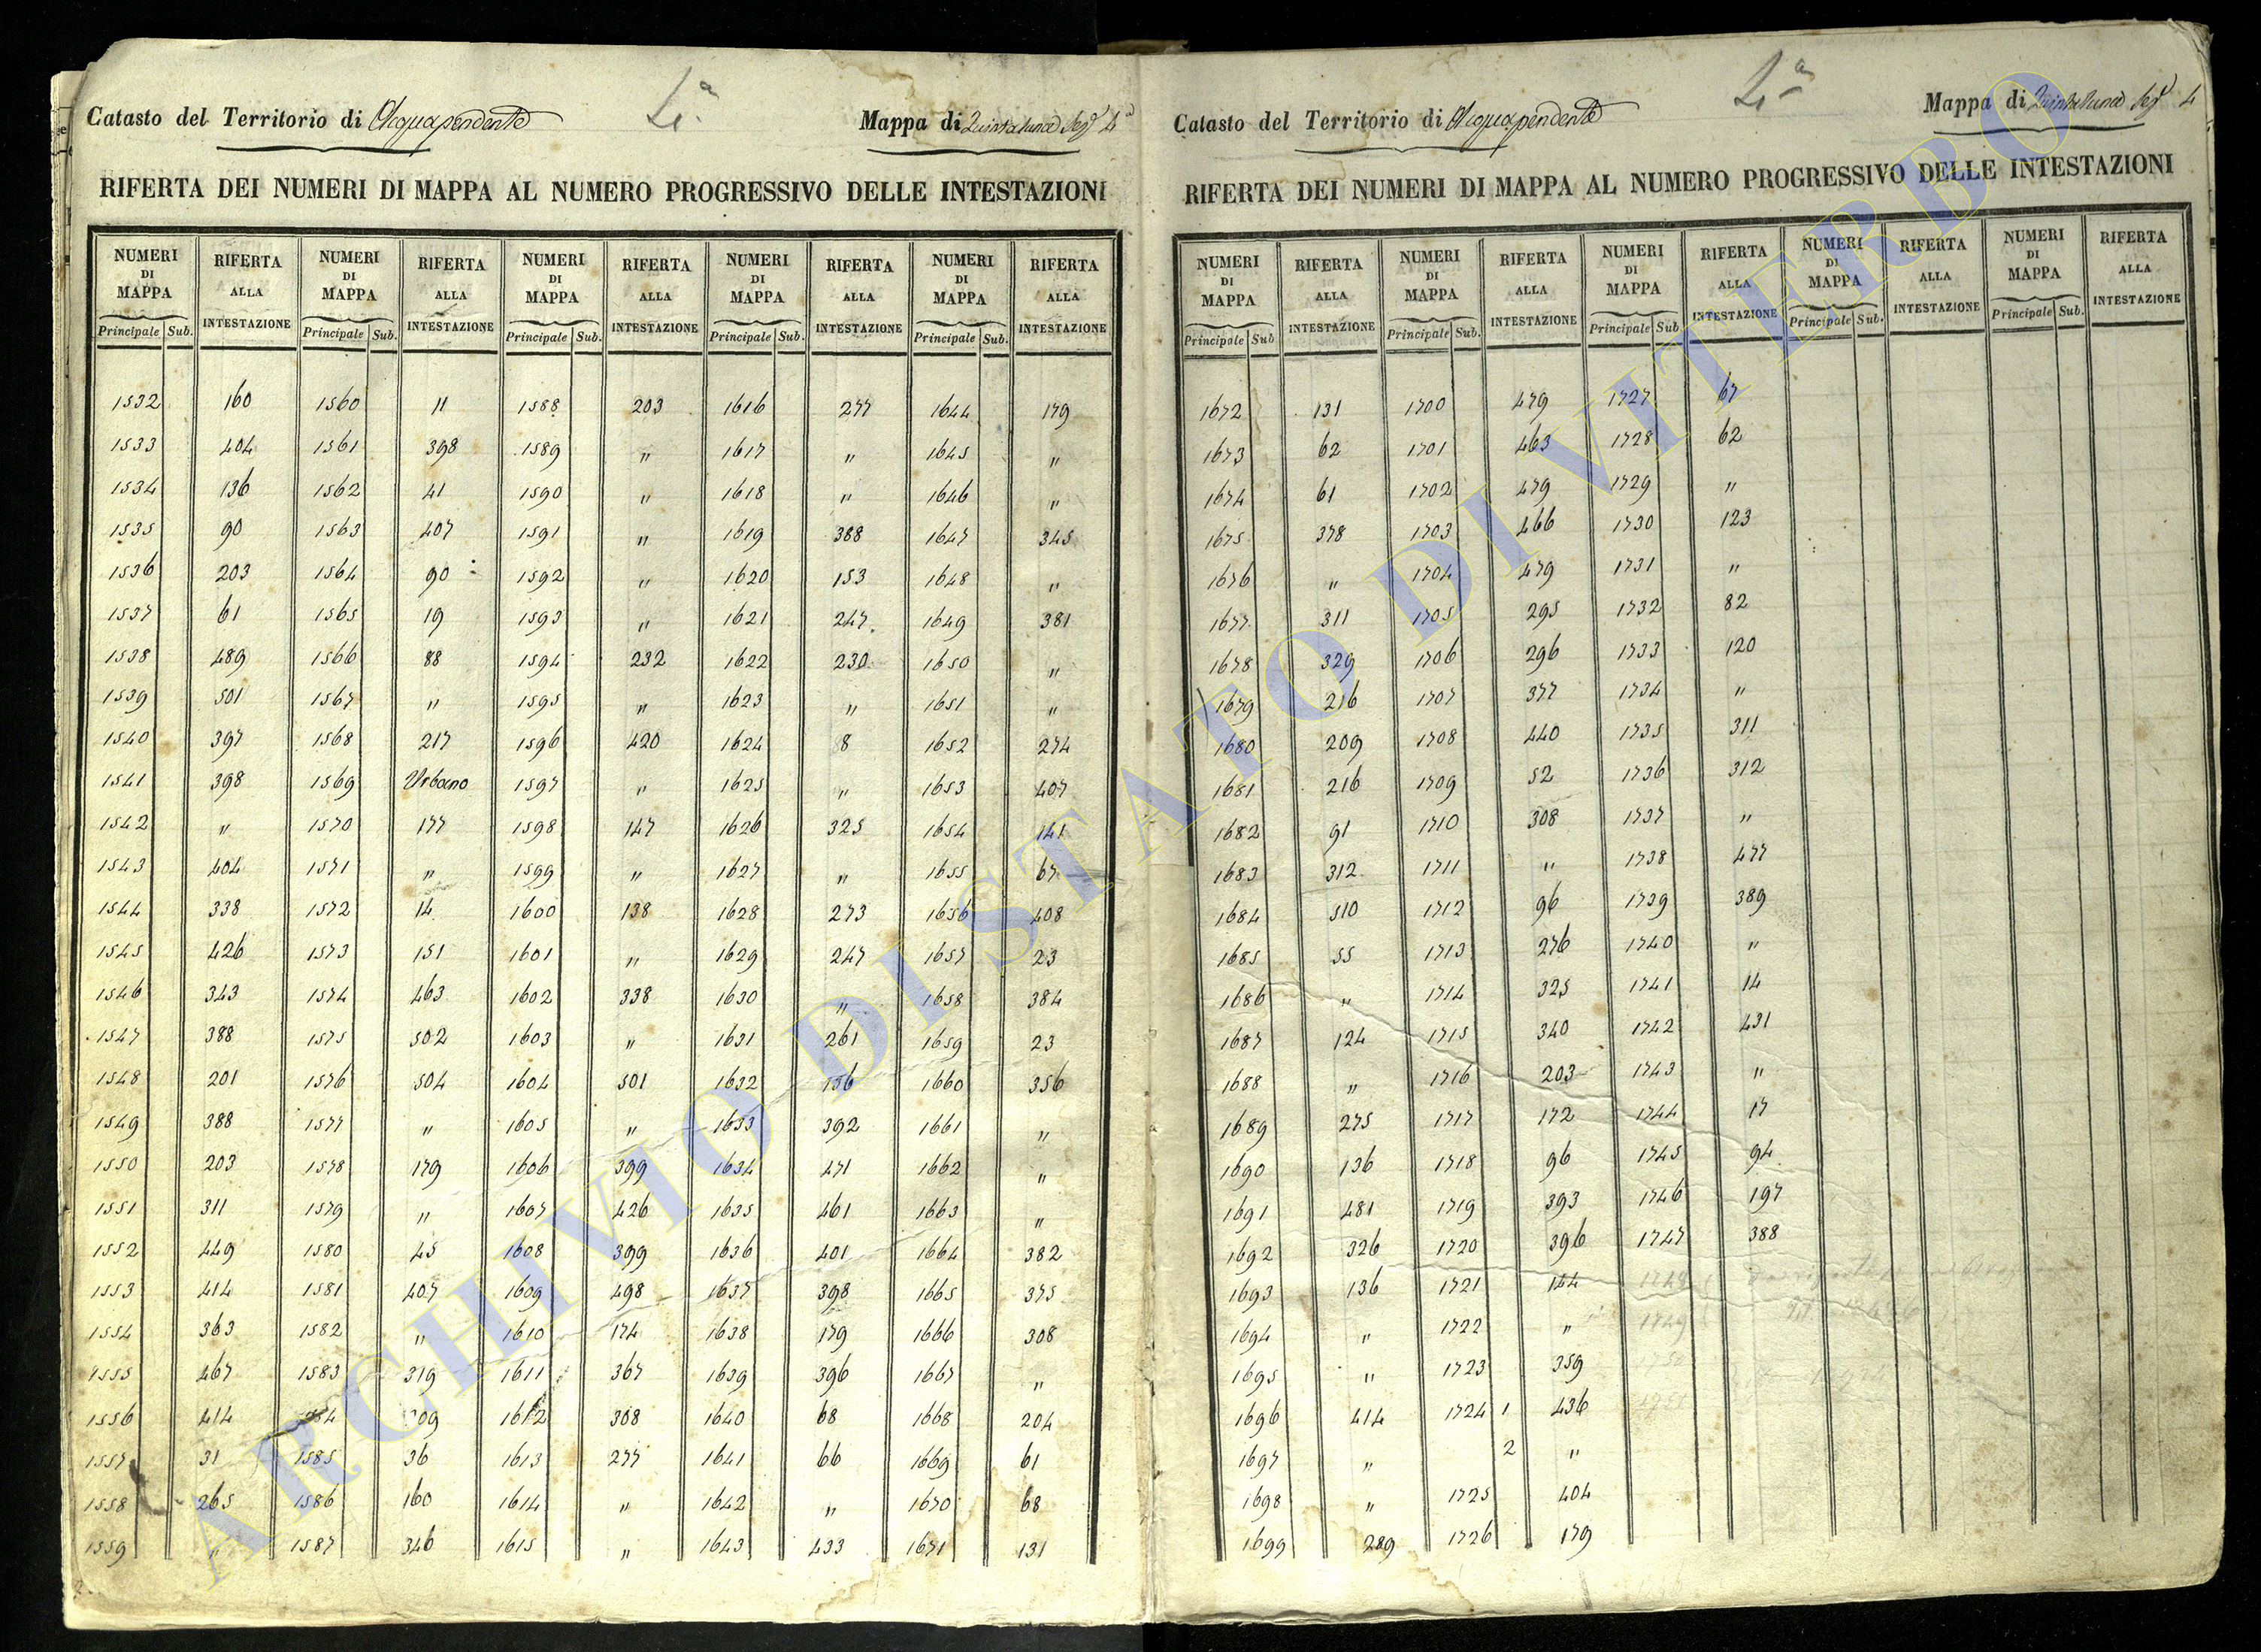 Catasto del Territorio di Acquapendente 4.a Mappa di Quintaluna Sez.e 4.a
RIFERTA DEI NUMERI DI MAPPA AL NUMERO PROGRESSIVO DELLE INTESTAZIONI
NUMERI DI MAPPA RIFERTA ALLA INTESTAZIONE NUMERI DI MAPPA RIFERTA ALLA INTESTAZIONE NUMERI DI MAPPA RIFERTA ALLA INTESTAZIONE NUMERI DI MAPPA RIFERTA ALLA INTESTAZIONE NUMERI DI MAPPA RIFERTA ALLA INTESTAZIONE
Principale Sub. Principale Sub. Principale Sub. Principale Sub. Principale Sub.
1532 160 1560 11 1588 203 1616 277 1644 179
1533 404 1561 398 1589 " 1617 " 1645 "
1534 136 1562 41 1590 " 1618 " 1646 "
1535 90 1563 407 1591 " 1619 388 1647 345
1536 203 1564 90 1592 " 1620 153 1648 "
1537 61 1565 19 1593 " 1621 247 1649 381
1538 489 1566 88 1594 232 1622 230 1650 "
1539 501 1567 " 1595 " 1623 " 1651 "
1540 397 1568 217 1596 420 1624 8 1652 274
1541 398 1569 Urbano 1597 " 1625 " 1653 407
1542 " 1570 177 1598 147 1626 325 1654 141
1543 404 1571 " 1599 " 1627 " 1655 67
1544 338 1572 14 1600 138 1628 273 1656 408
1545 426 1573 151 1601 " 1629 247 1657 23
1546 343 1574 463 1602 338 1630 " 1658 384
1547 388 1575 502 1603 " 1631 261 1659 23
1548 201 1576 504 1604 501 1632 156 1660 356
1549 388 1577 " 1605 " 1633 392 1661 "
1550 203 1578 179 1606 399 1634 471 1662 "
1551 311 1579 " 1607 426 1635 461 1663 "
1552 449 1580 45 1608 399 1636 401 1664 382
1553 414 1581 407 1609 498 1637 398 1665 375
1554 363 1582 " 1610 174 1638 179 1666 308
1555 467 1583 319 1611 367 1639 396 1667 "
1556 414 1612 308 1640 68 1668 204
1557 31 1585 36 1613 277 1641 66 1669 61
1558 265 1586 160 1614 " 1642 " 1670 68
1559 " 1587 346 1615 " 1643 433 1671 131
Catasto del Territorio di Acquapendente 4.a Mappa di Quintaluna Sez.e 4
RIFERTA DEI NUMERI DI MAPPA AL NUMERO PROGRESSIVO DELLE INTESTAZIONI
NUMERI DI MAPPA RIFERTA ALLA INTESTAZIONE NUMERI DI MAPPA RIFERTA ALLA INTESTAZIONE NUMERI DI MAPPA RIFERTA ALLA INTESTAZIONE NUMERI DI MAPPA RIFERTA ALLA INTESTAZIONE NUMERI DI MAPPA RIFERTA ALLA INTESTAZIONE
Principale Sub Principale Sub. Principale Sub Principale Sub. Principale Sub.
1672 131 1700 479 1727 67
1673 62 1701 463 1728 62
1674 61 1702 479 1729 "
1675 378 1703 466 1730 123
1676 " 1704 479 1731 "
1677 311 1705 295 1732 82
1678 329 1706 296 1733 120
1679 216 1707 377 1734 "
1680 209 1708 440 1735 311
1681 216 1709 52 1736 312
1682 91 1710 308 1737 "
1683 312 1711 " 1738 477
1684 510 1712 96 1739 389
1685 55 1713 276 1740 "
1686 " 1714 325 1741 14
1687 124 1715 340 1742 431
1688 " 1716 203 1743 "
1689 275 1717 172 1744 17
1690 136 1718 96 1745 94
1691 481 1719 393 1746 197
1692 326 1720 396 1747 388
1693 136 1721 144 1748
1694 " 1722 " 1749
1695 " 1723 359
1696 414 1724 1 436
1697 " 2 "
1698 " 1725 404
1699 289 1726 179
ARCHIVIO DI STATO DI VITERBO